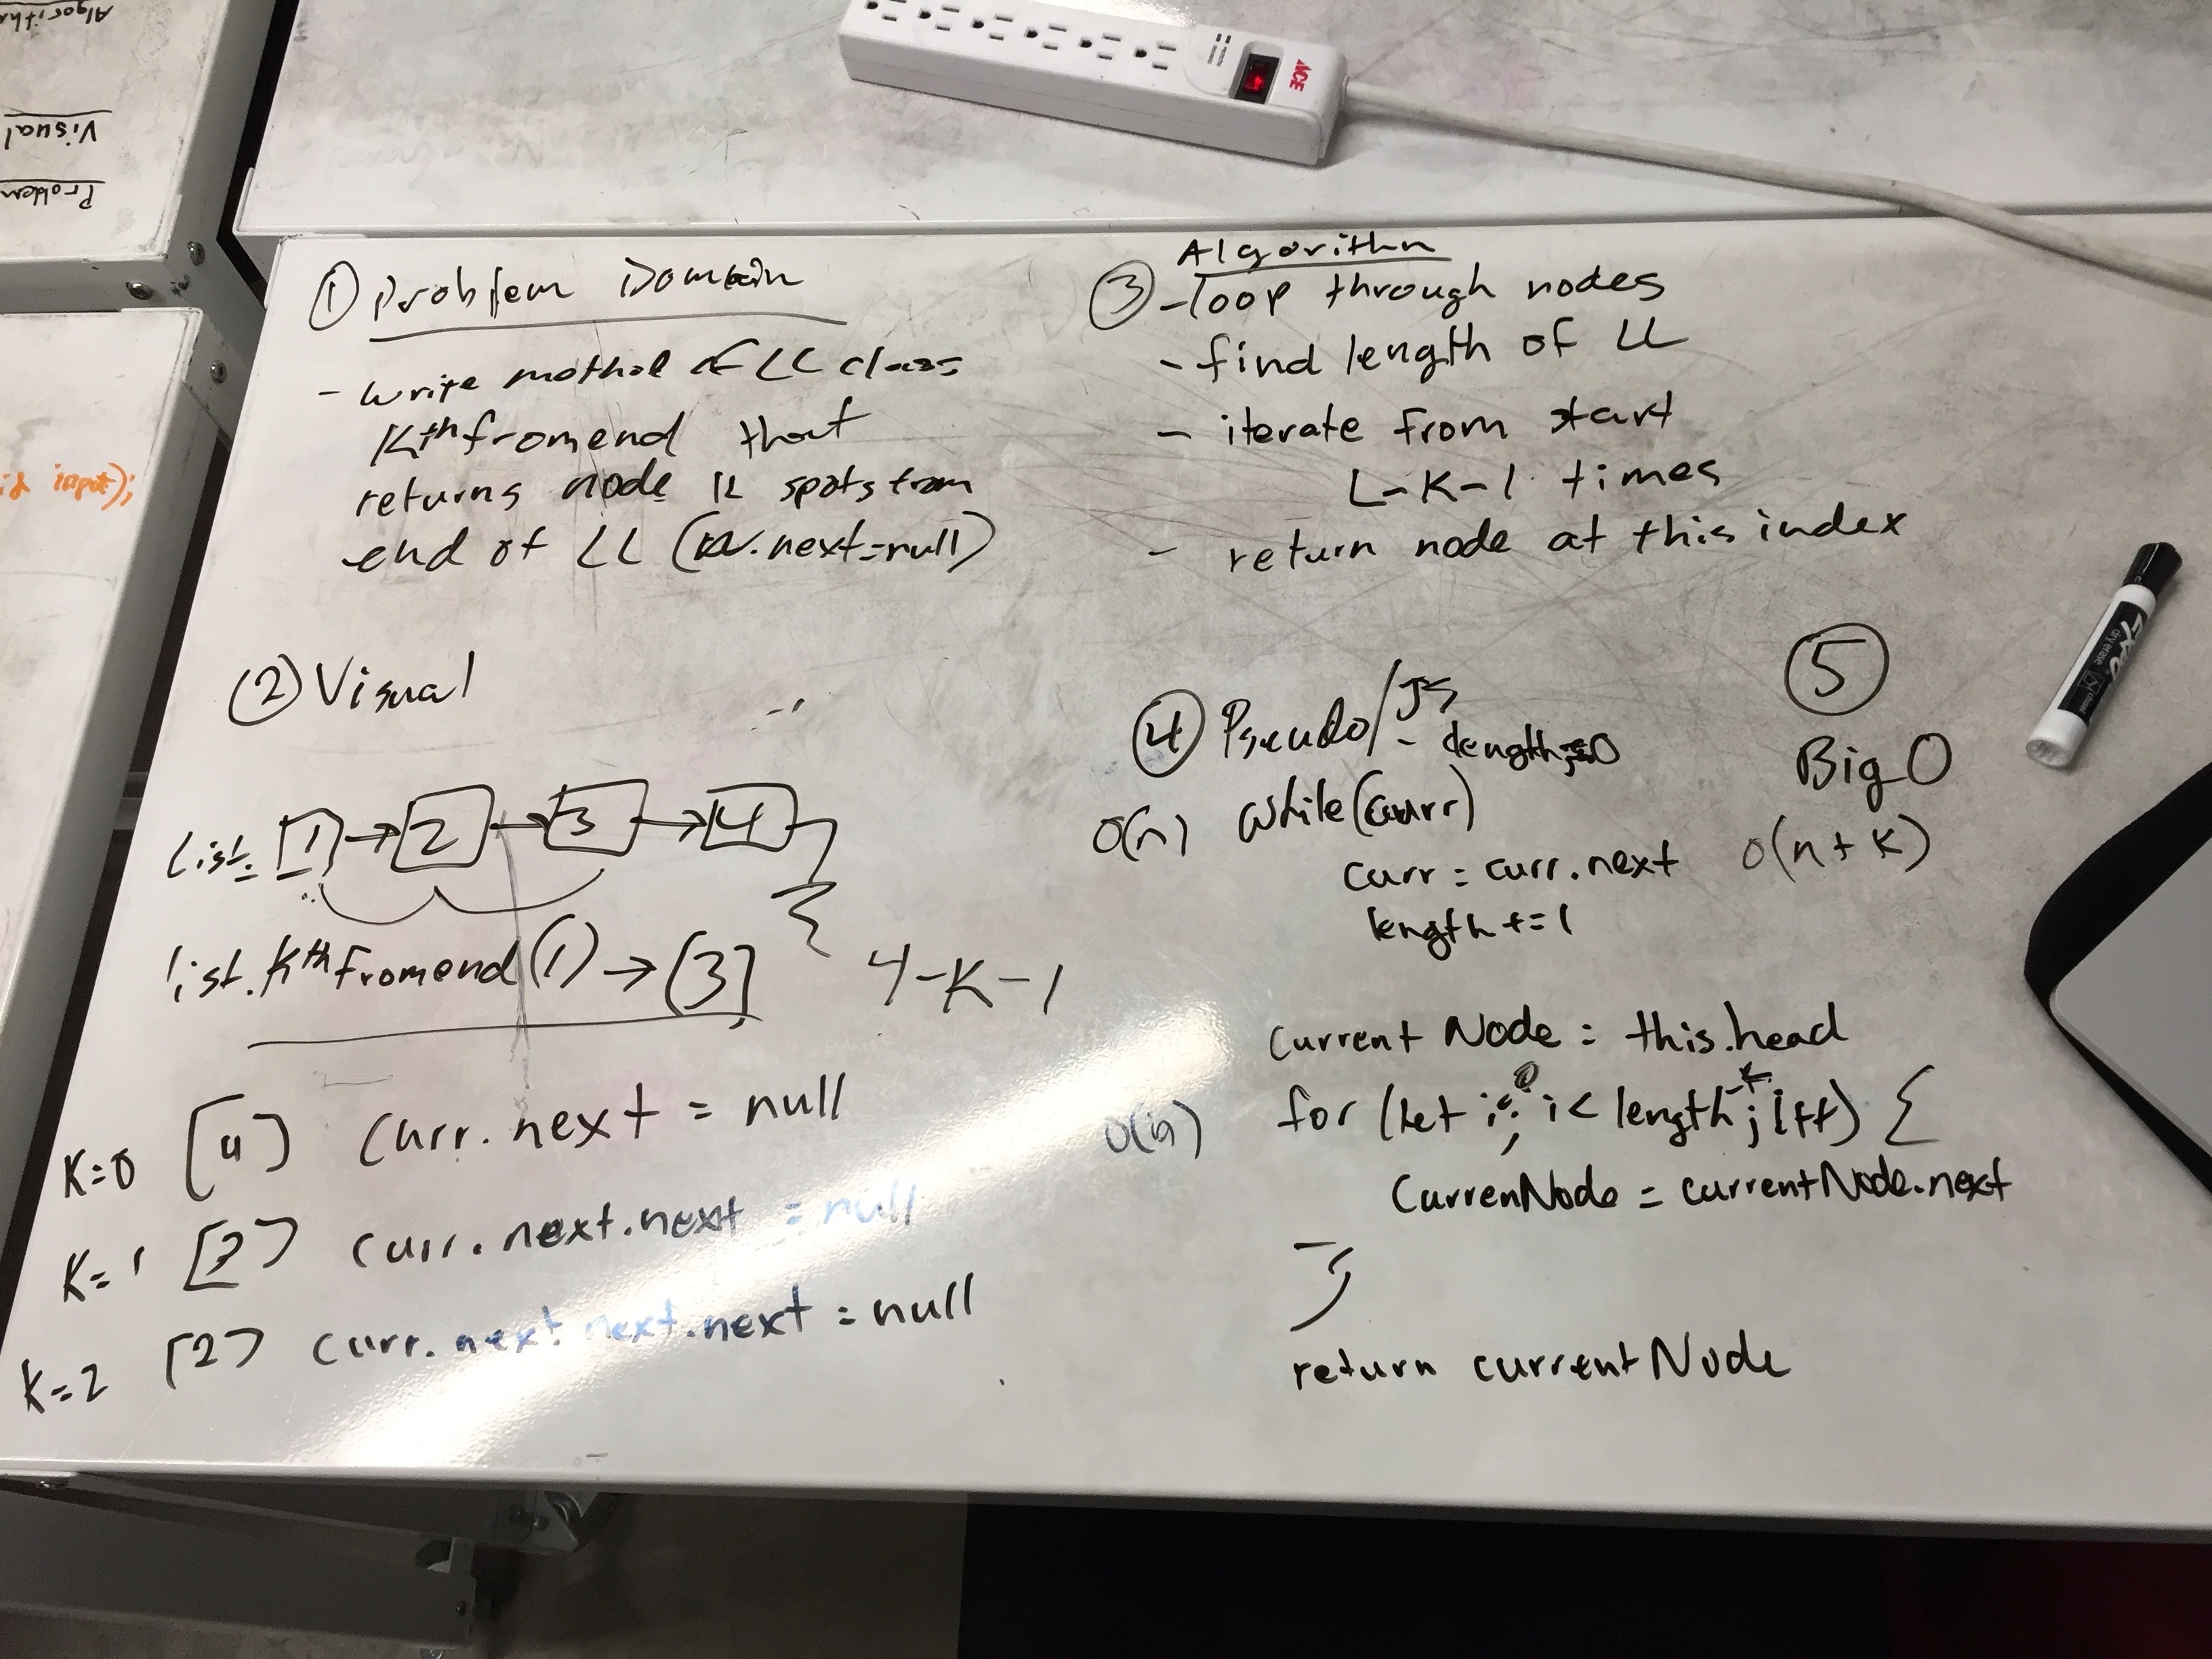 Algorithm
Visual
Problem
input);
ACE
① Problem Domain
- write method of LL class
Kth fromend that
returns node K spots from
end of LL (K.next=null)
② Visual
list: [1] → [2] → [3] → [4]
list.Kth Fromend(1) → [3]
4-K-1
K=0 [4] curr.next = null
K=1 [3] curr.next.next = null
K=2 [2] curr.next.next.next = null
Algorithm
③ -loop through nodes
- find length of LL
- iterate from start
L-K-1 times
- return node at this index
④ Pseudo/JS
- length=0
O(n) while(curr)
curr = curr.next
length += 1
currentNode = this.head
O(n) for (let i=0; i< length-k; i++) {
CurrenNode = currentNode.next
}
return currentNode
⑤
Big O
O(n+k)
EXPO
dry erase